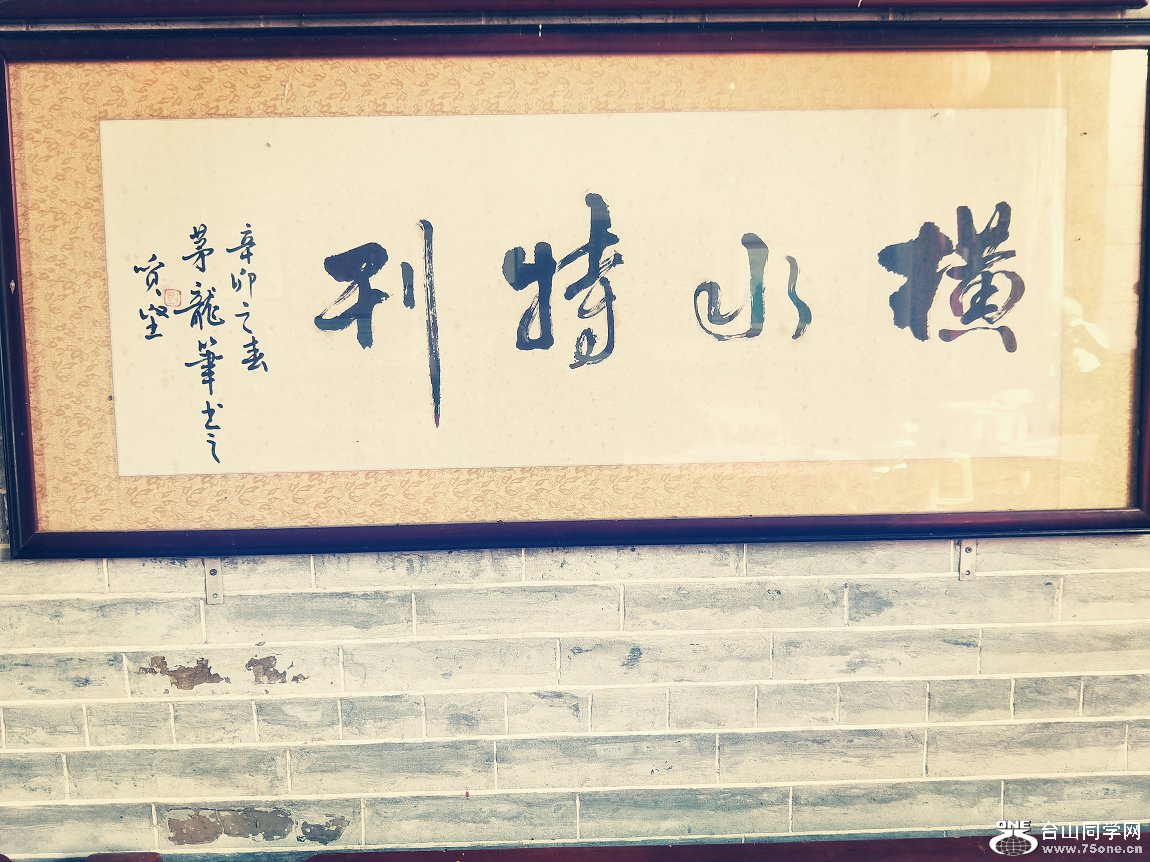 横山特刊
辛卯之春
茅龍筆书之
ONE 台山同学网
www.75one.cn